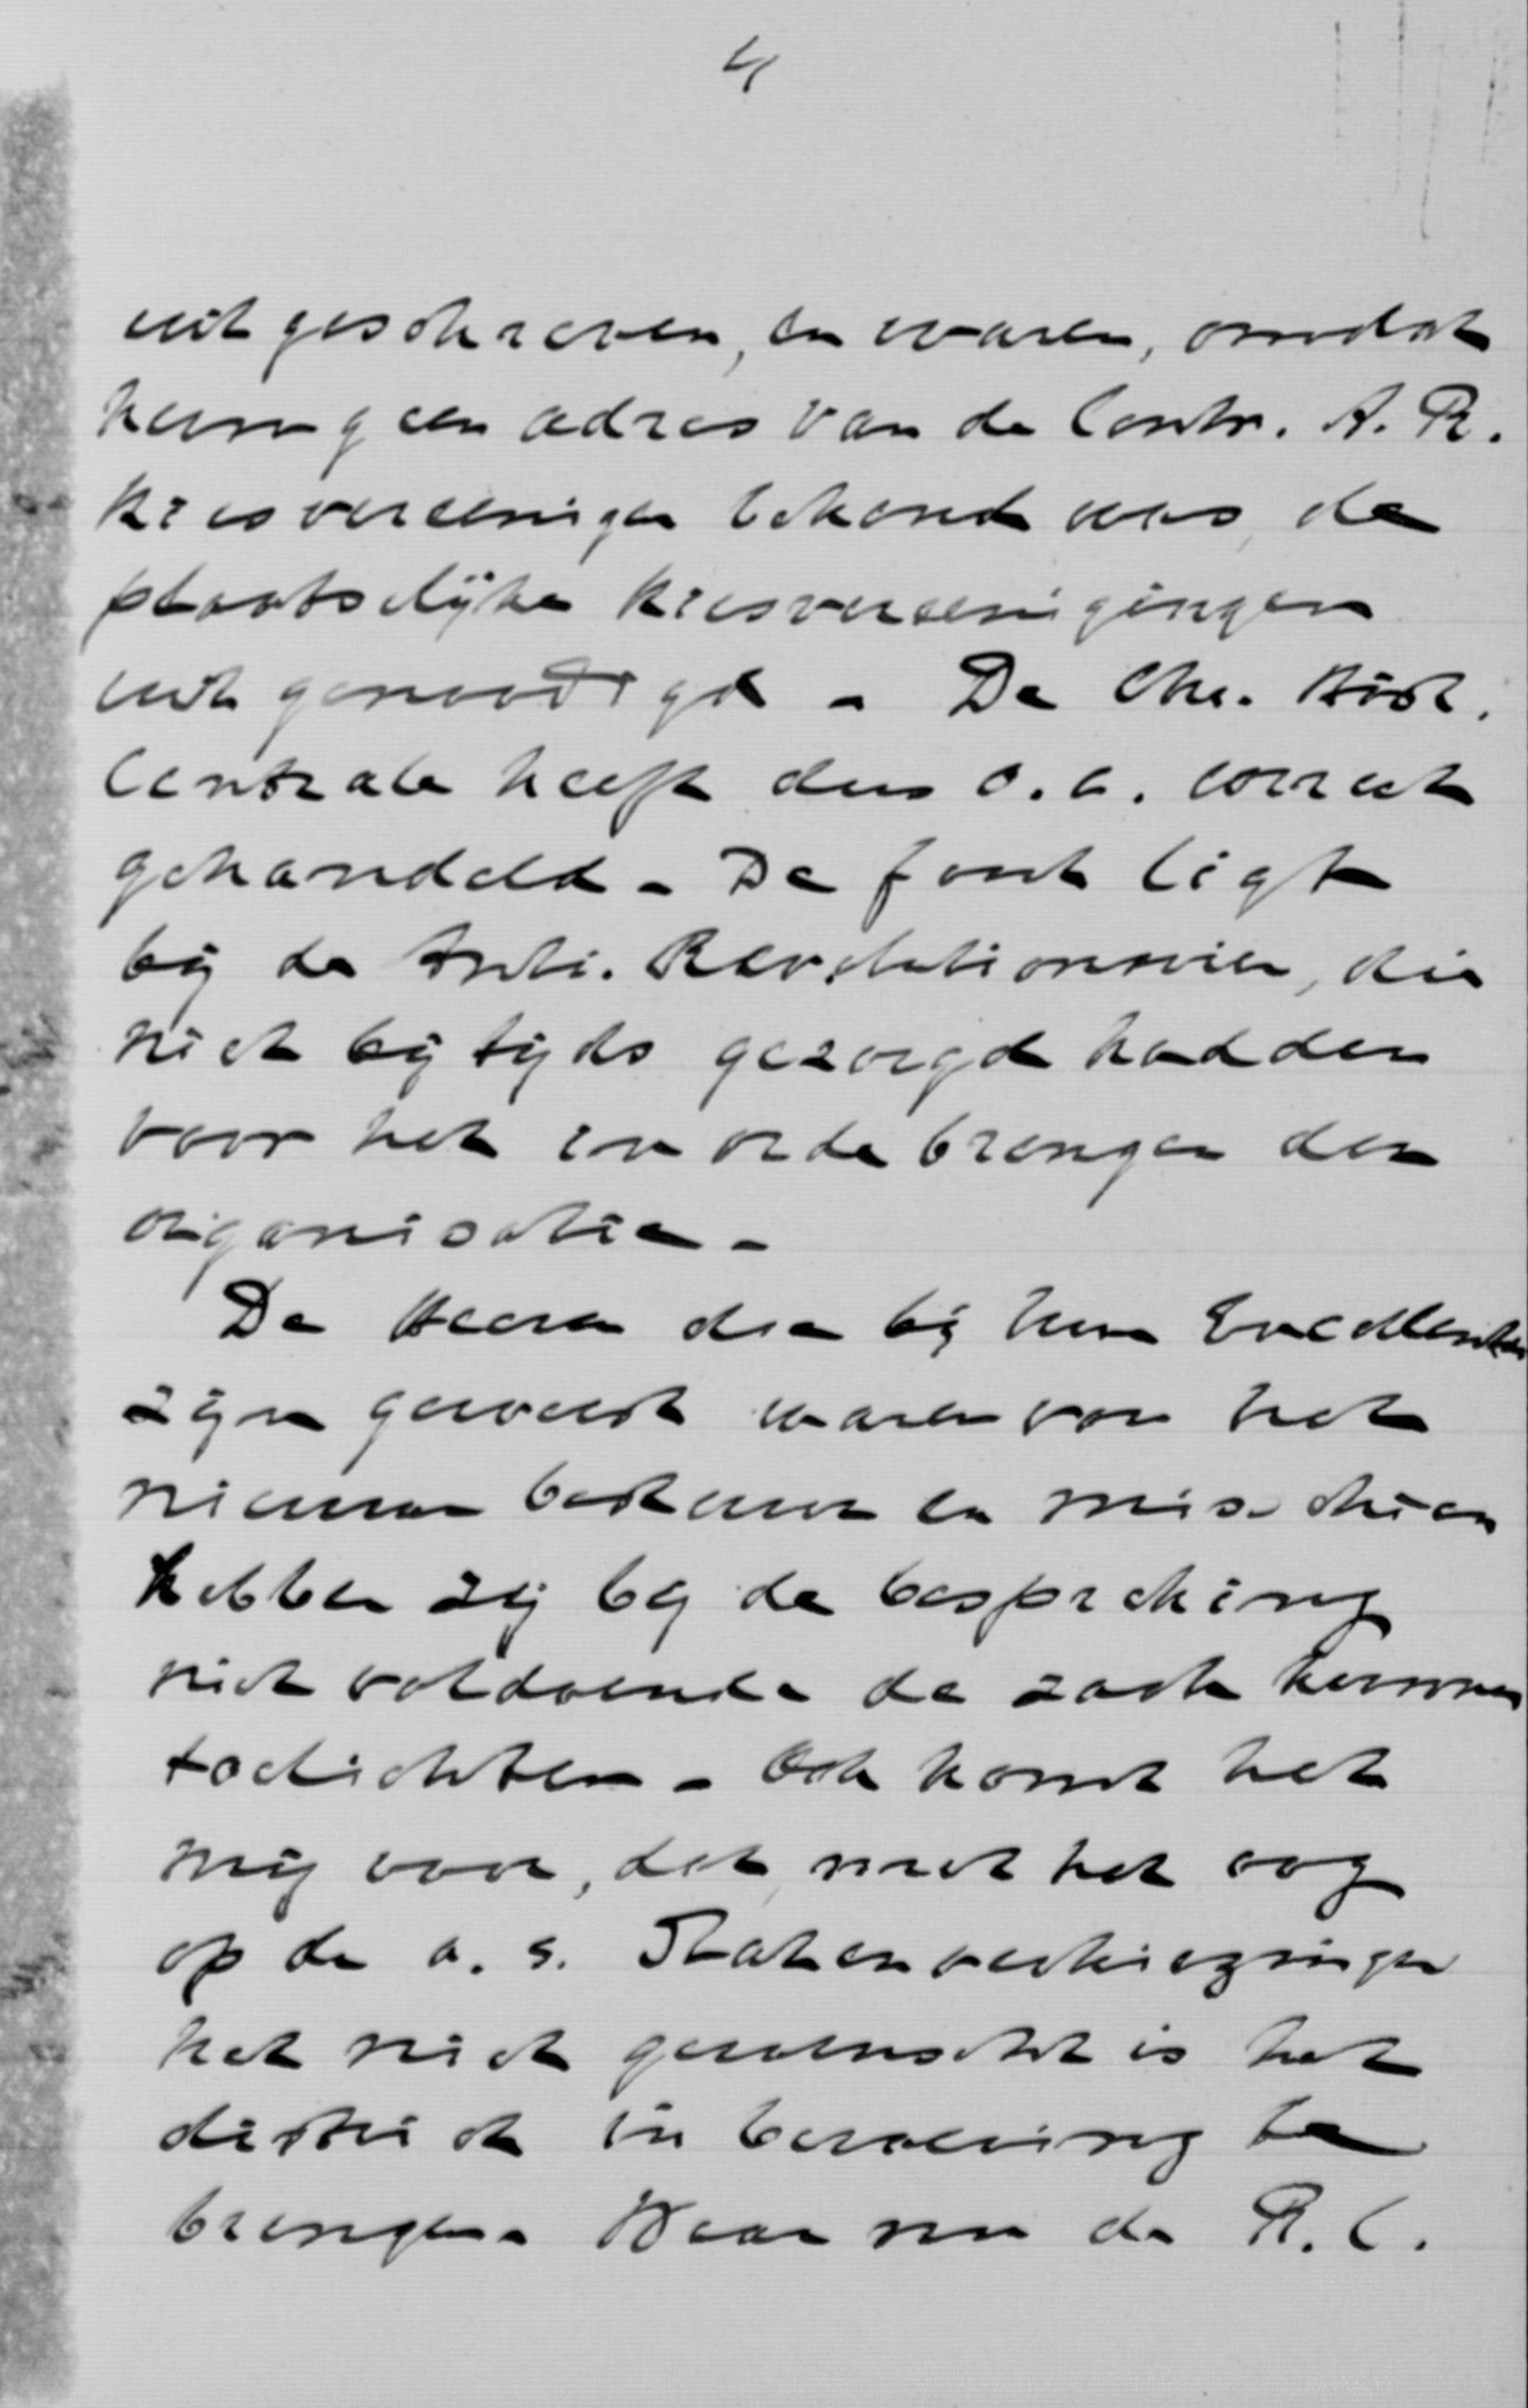 4
uitgeschreven, en waren, omdat
hun geen adres van de Centr. A. R.
Kiesvereenigen bekend was, de
plaatselijke Kiesvereenigingen
uitgenoodigd - De Chr. Hist.
Centrale heeft dus o.a. correct
gehandeld - De fout ligt
bij de Anti. Revolutionnairen, die
niet bijtijds gezorgd hadden
voor het in orde brengen der
organisatie -
De Heeren die bij hun Excellenties
zijn geweest waren van het
nieuwe bestuur en misschien
hebben zij bij de bespreking
niet voldoende de zaak kunnen
toelichten - Ook komt het
mij voor, dat, met het oog
op de a. s. Statenverkiezingen
het niet gewenscht is het
district in beroering te
brengen. Waar nu de R. C.